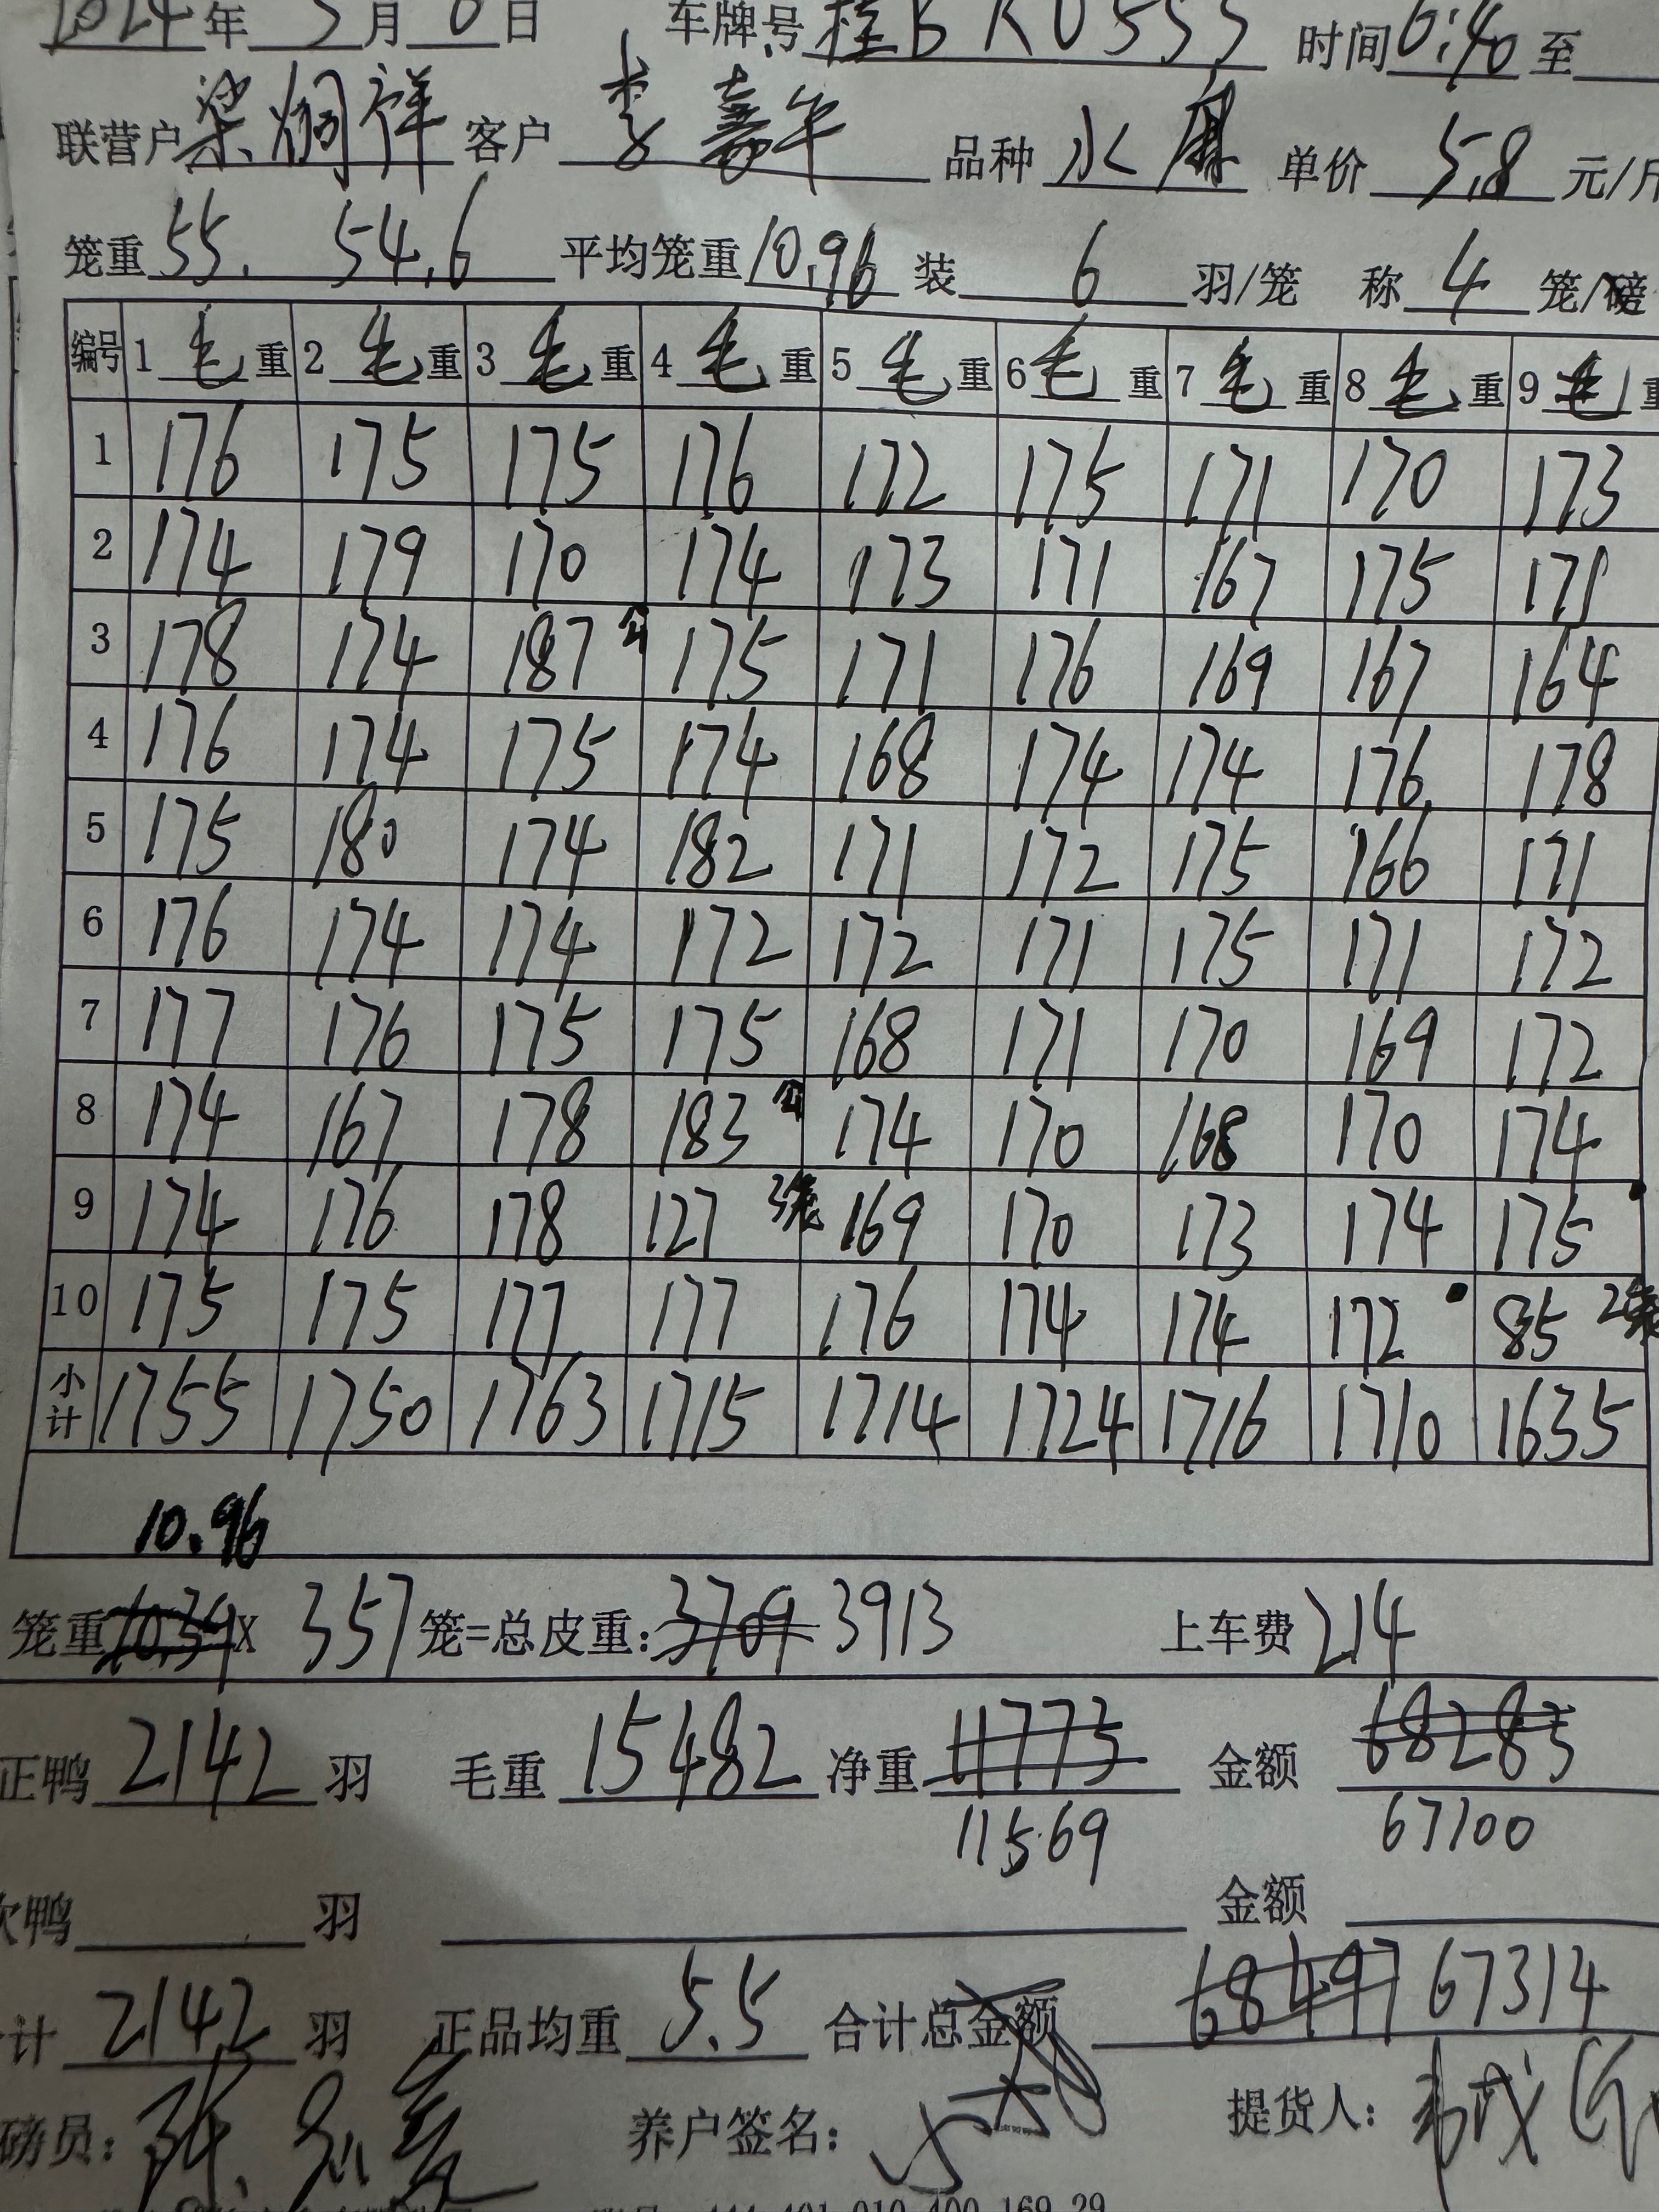 2024年 5月 6日 车牌号 桂BK0555 时间6:40至
联营户 梁炯祥 客户 李嘉年 品种 水麻 单价 5.8 元/斤
笼重 55. 54.6 平均笼重 10.96 装 6 羽/笼 称 4 笼/磅
编号 1毛重 2毛重 3毛重 4毛重 5毛重 6毛重 7毛重 8毛重 9毛重
1 176 175 175 176 172 175 171 170 173
2 174 179 170 174 173 171 167 175 171
3 178 174 187公 175 171 176 169 167 164
4 176 174 175 174 168 174 174 176 178
5 175 180 174 182 171 172 175 166 171
6 176 174 174 172 172 171 175 171 172
7 177 176 175 175 168 171 170 169 172
8 174 167 178 183公 174 170 168 170 174
9 174 176 178 127 3笼 169 170 173 174 175
10 175 175 177 177 176 174 174 172 85 2笼
小计 1755 1750 1763 1715 1714 1724 1716 1710 1635
10.96
笼重 10.39 X 357 笼=总皮重: 3709 3913 上车费 214
正鸭 2142 羽 毛重 15482 净重 11773 金额 68283
11569 67100
次鸭 羽 金额
计 2142 羽 正品均重 5.5 合计总金额 68497 67314
磅员: 养户签名: 提货人: